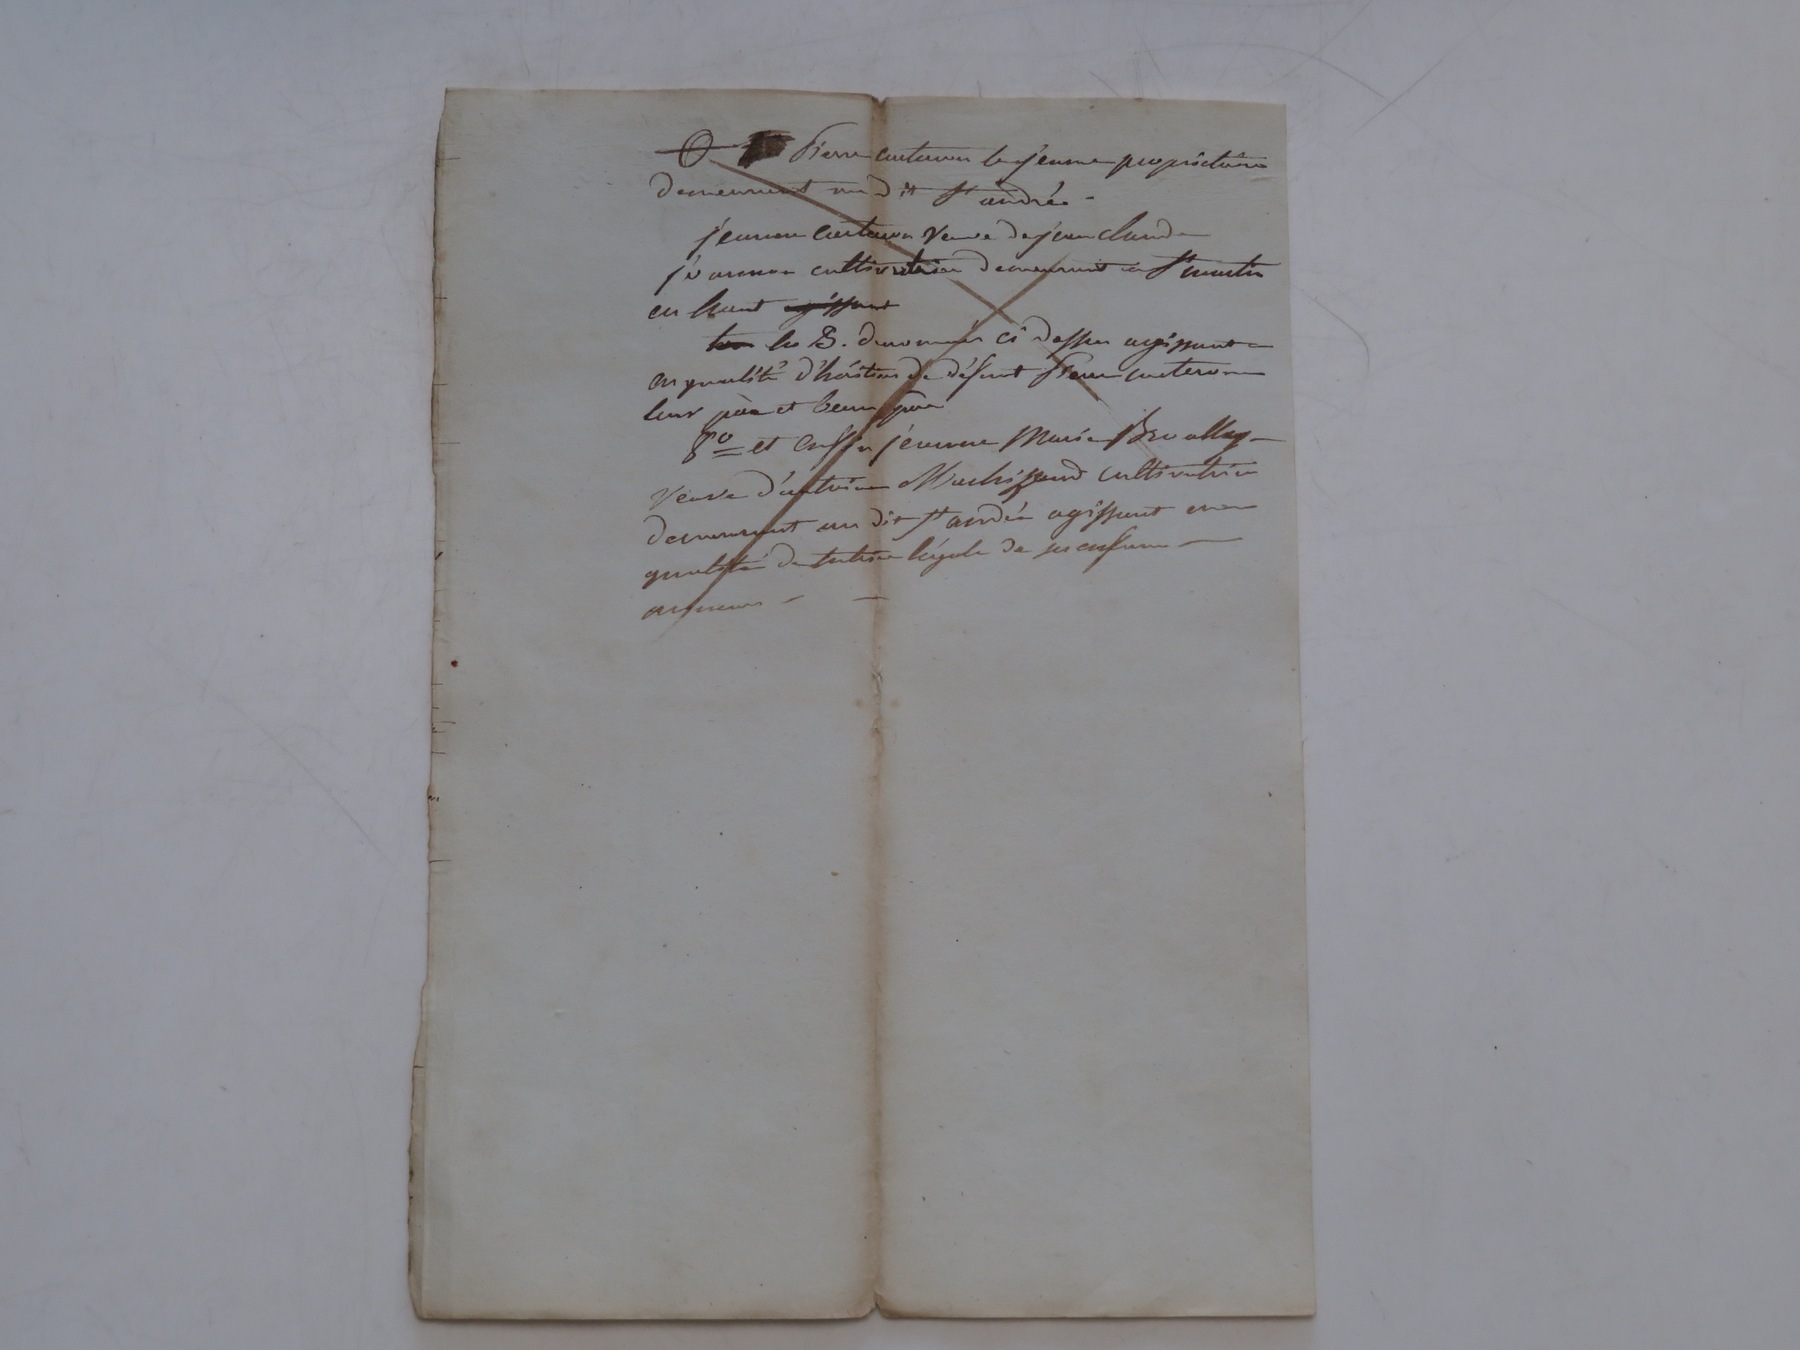 Pierre le jeune propriétaire
demeurant au dit St andré
jeanne veuve de jean claude
cultivatrice demeurant à St martin
en haut agissant
les S. denommés ci dessus agissant
en qualité d'héritiers de défunt Pierre
leur père et beau père
8o et enfin jeanne Marie
veuve d'antoine cultivatrice
demeurant au dit St andré agissant en
qualité de tutrice légale de ses enfans
mineurs